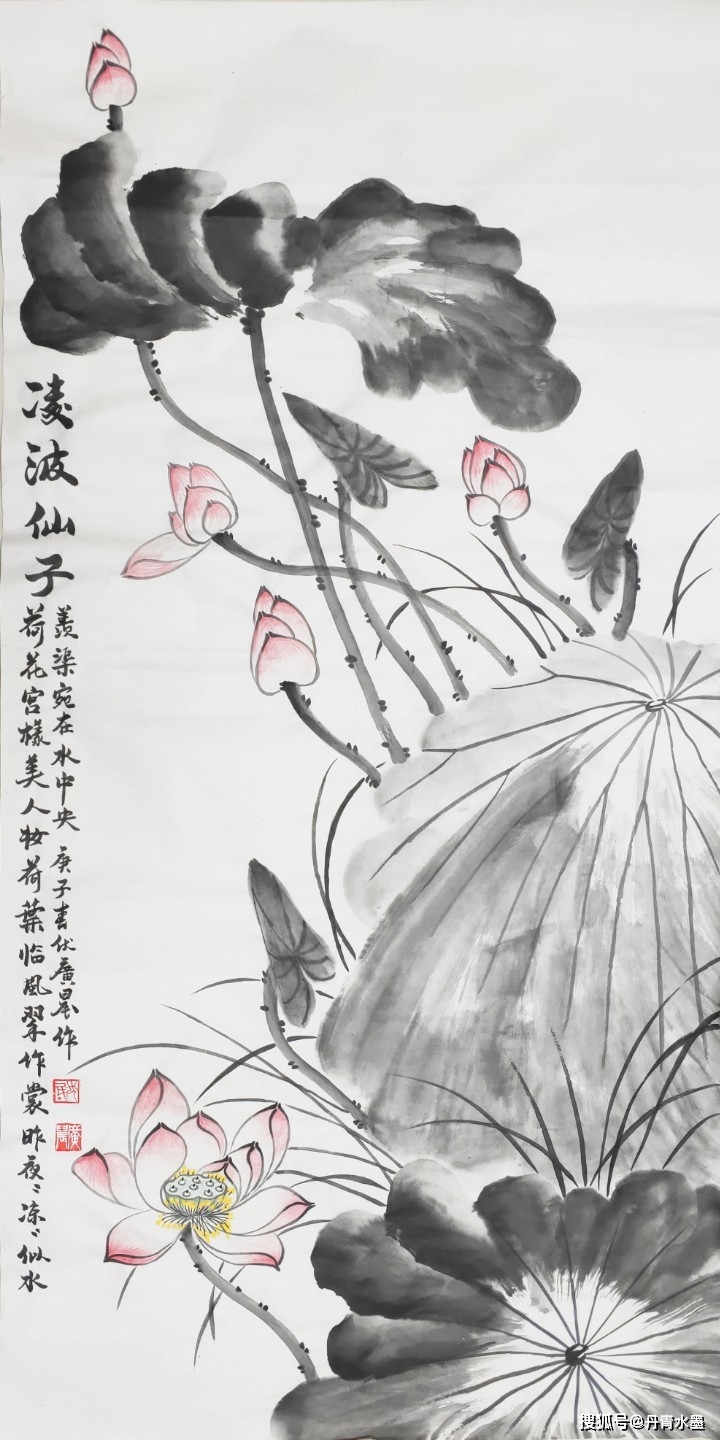 凌波仙子
荷花宮樣美人妝荷葉临風翠作裳昨夜〻凉〻似水
羨渠宛在水中央 庚子春伏廣作
搜狐号@丹青水墨